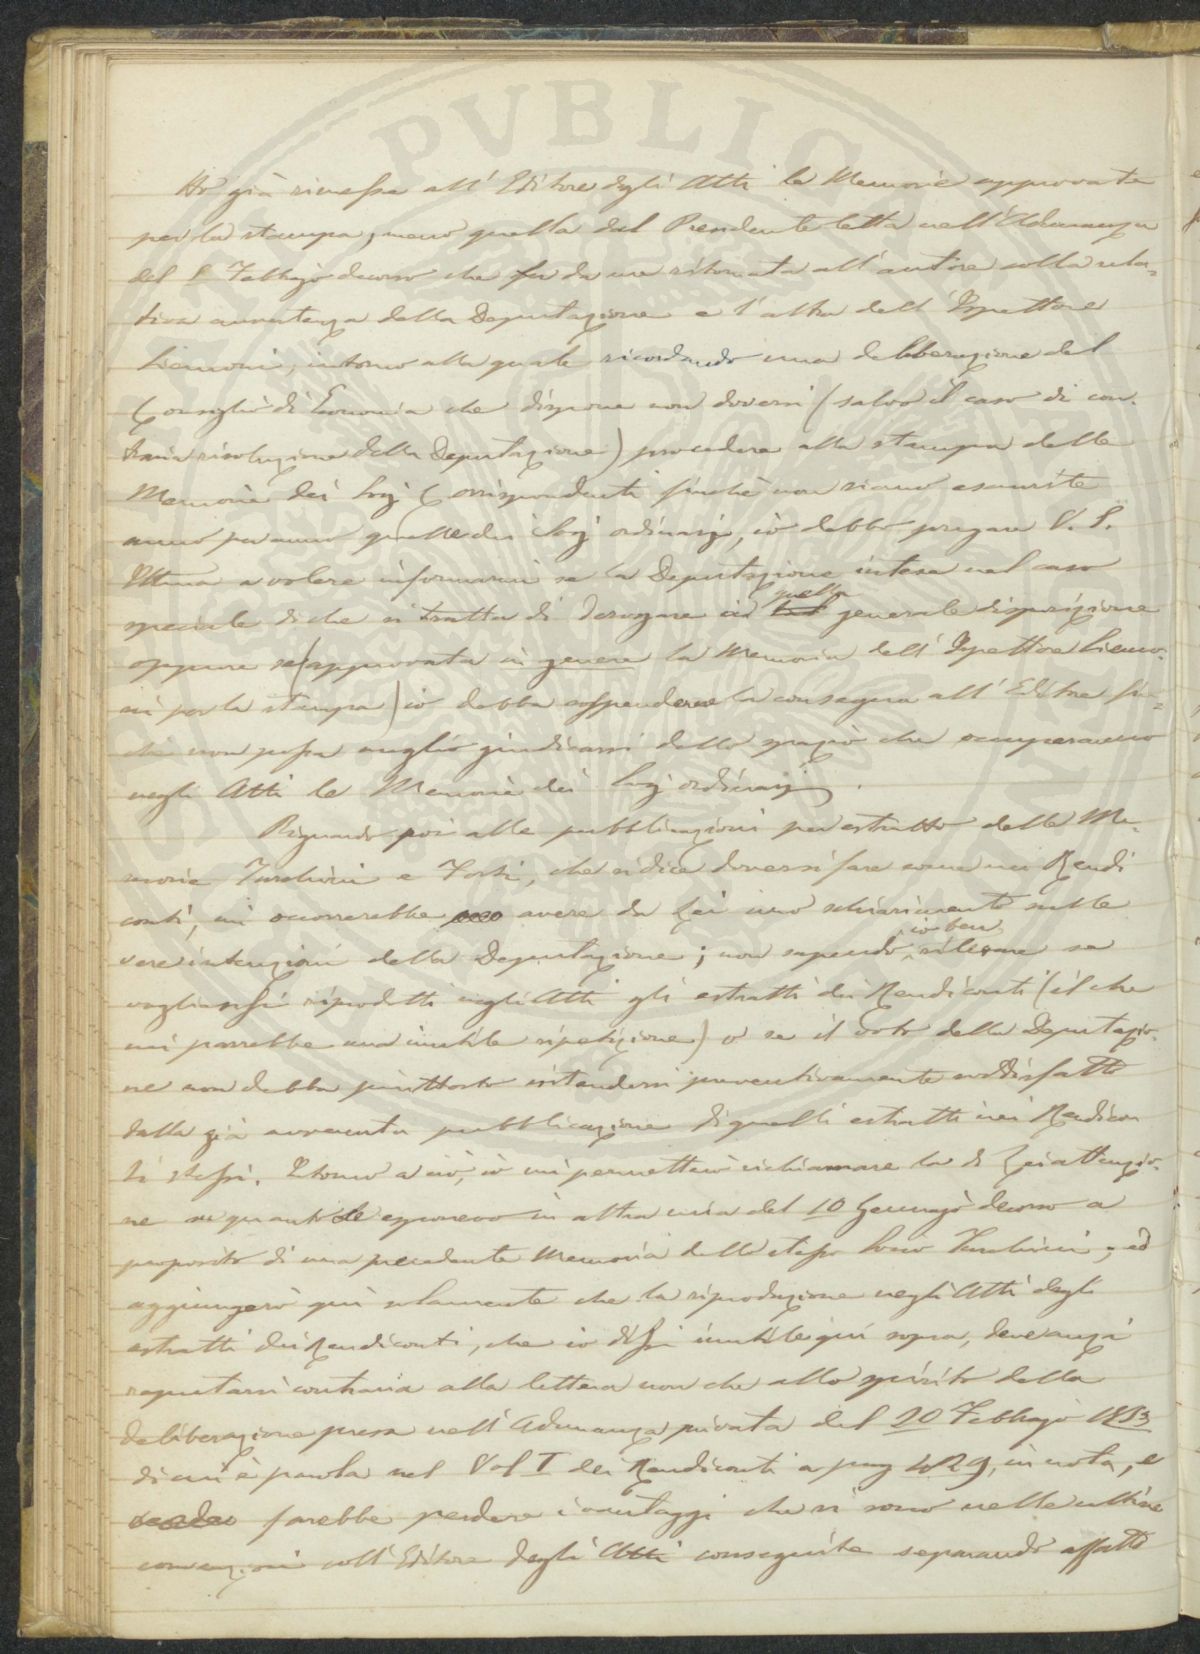 PVBLICA
Ho già rimessa all'Editore degli Atti le Memorie approvate
per la stampa, meno quella del Presidente letta nell'Adunanza
del 8 Febbrajo decorso che fu da me ritornata all'autore colla rela-
tiva avvertenza della Deputazione e l'altra dell'Ispettore
Siemoni, intorno alla quale ricordando una deliberazione del
Consiglio di Economia che dispone non doversi (salvo il caso di con-
traria risoluzione della Deputazione) procedere alla stampa delle
Memorie dei Socj Corrispondenti finchè non siano esaurite
anno per anno quelle dei Socj ordinarj, io debbo pregare V. S.
Illma a volere informarmi se la Deputazione intese nel caso
speciale di che si tratta di derogare a quella generale disposizione
oppure se (approvata in genere la Memoria dell'Ispettore Siemo-
ni per la stampa) io debba sospenderne la consegna all'Editore fin-
chè non possa meglio giudicarsi dello spazio che occuperanno
negli Atti le Memorie dei Socj ordinarj.
Riguardo poi alle pubblicazioni per estratto delle Me-
morie Turchini e Forti, che si dice doversi fare come nei Rendi
conti, mi occorrerebbe avere da Lei uno schiarimento sulle
vere intenzioni della Deputazione; non sapendo io ben rilevare se
vogliansi riprodotti negli Atti gli estratti dei Rendiconti (il che
mi parrebbe una inutile ripetizione) o se il voto della Deputazio-
ne non debba piuttosto intendersi preventivamente soddisfatto
dalla già avvenuta pubblicazione di quelli estratti nei Rendicon
ti stessi. Intorno a ciò, io mi permetterò richiamare la di Lei attenzio-
ne su quanto le esponevo in altra mia del 10 Gennajo decorso a
proposito di una precedente Memoria dello stesso Socio Turchini; ed
aggiungerò qui solamente che la riproduzione negli Atti degli
estratti dei Rendiconti, che io dissi inutile qui sopra, deve anzi
reputarsi contraria alla lettera non che allo spirito della
deliberazione presa nell'Adunanza privata del 20 Febbrajo 1853
di cui è parola nel Vol I dei Rendiconti a pag 429, in nota, e
farebbe perdere i vantaggi che si sono nelle ultime
convenzioni coll'Editore degli Atti conseguite separando affatto